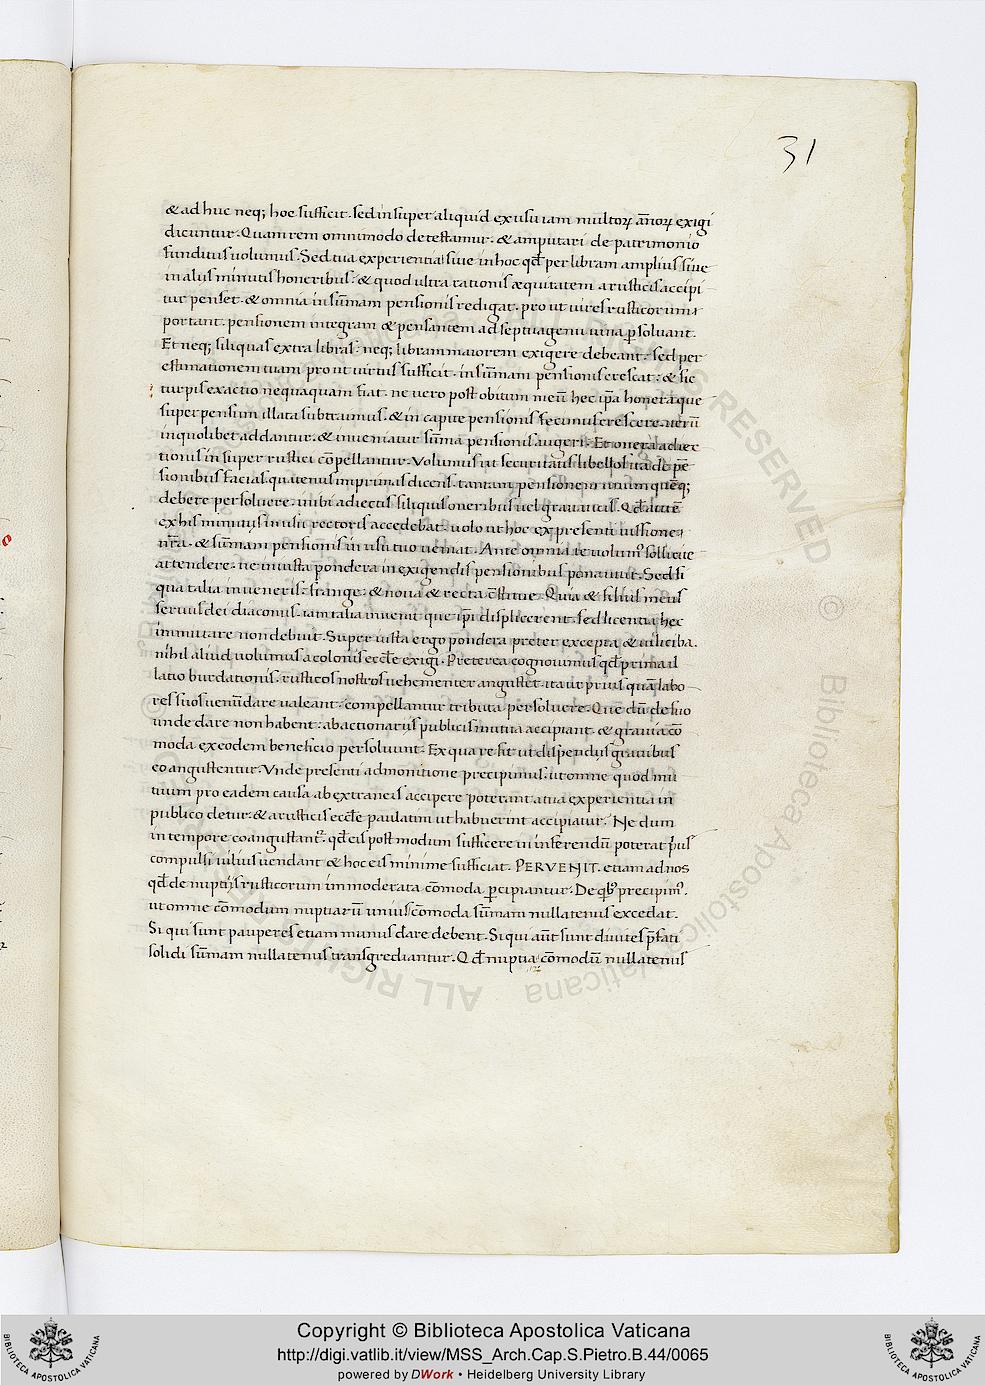 31
& ad huc neq; hoc sufficit. sed insuper aliquid ex usu iam multoꝝ añoꝝ exigi
dicuntur. Quam rem omnimodo detestamur. & amputari de patrimonio
funditus uolumus. Sed tua experientia siue in hoc qđ per libram amplius siue
in aliis minutis honeribus. & quod ultra rationis æquitatem a rusticis accipi
tur penset. & omnia in sūmam pensionis redigat. pro ut uires rusticorum
portant. pensionem integram & pensantem ad septuagenu uina ꝑsoluant.
Et neq; siliquas extra libras. neq; libram maiorem exigere debeant. sed per
estimationem tuam pro ut uirtus sufficit. in sūmam pensionis crescat. & sic
turpis exactio nequaquam fiat. ne uero post obitum meū hec ip̄a honera que
super pensum illata subtraximus. & in capite pensionis fecimus crescere. uerū
in quolibet addantur. & inueniatur sūma pensionis augeri. Et onera adiec
tionis insuper rustici cōpellantur. Volumus ut securitatis libellos ita de pē
sionibus facias. quatenus imprimas dicens. tantam pensionem unum quēq;
debere persoluere. inibi adiectis siliquis oneribus uel granaticis. Qđ autē
ex his minutis in usu rectoris accedebat. uolo ut hoc ex presenti iussione
nr̄a. & sūmam pensionis in usu tuo ueniat. Ante omnia te uolum' sollicite
attendere. ne iniusta pondera in exigendis pensionibus ponantur. Sed si
qua talia inueneris. frange. & noua & recta cōstitue. Quia & filius meus
seruus dei diaconus. iam talia inuenit que ip̄i displicerent. sed licentia hec
immutare non debuit. Super iusta ergo pondera preter excepta & uiliciba.
nihil aliud uolumus a colonis eccłe exigi. Preterea cognouimus qđ prima il
latio burdationis. rusticos nostros uehementer angustet. ita ut prius quā labo
res suos uenūdare ualeant. compellantur tributa persoluere. Que dū de suo
unde dare non habent. ab actionariis publicis mutua accipiant. & grauia cō
moda ex eodem beneficio persoluunt. Ex qua re fit ut dispendijs grauibus
eo angustentur. Vnde presenti admonitione precipimus. ut omne quod mu
tuum pro eadem causa ab extraneis accipere poterant. a tua experientia in
publico detur. & a rusticis eccłe paulatim ut habuerint accipiatur. Ne dum
in tempore coangustant'. qđ eis post modum sufficere in inferendū poterat prius
compulsi uilius uendant & hoc eis minime sufficiat. PERVENIT. etiam ad nos
qđ de nuptijs rusticorum immoderata cōmoda ꝑcipiantur. De qb' precipim'.
ut omne cōmodum nuptiarū unius cōmoda sūmam nullatenus excedat.
Si qui sunt pauperes etiam minus dare debent. Si qui aūt sunt diuites p̄fati
solidi sūmam nullatenus transgrediantur. Qđ nuptia cōmodū nullatenus
ALL RIGHTS RESERVED
© Biblioteca Apostolica Vaticana
Copyright © Biblioteca Apostolica Vaticana
http://digi.vatlib.it/view/MSS_Arch.Cap.S.Pietro.B.44/0065
powered by DWork • Heidelberg University Library
BIBLIOTECA APOSTOLICA VATICANA
BIBLIOTECA APOSTOLICA VATICANA